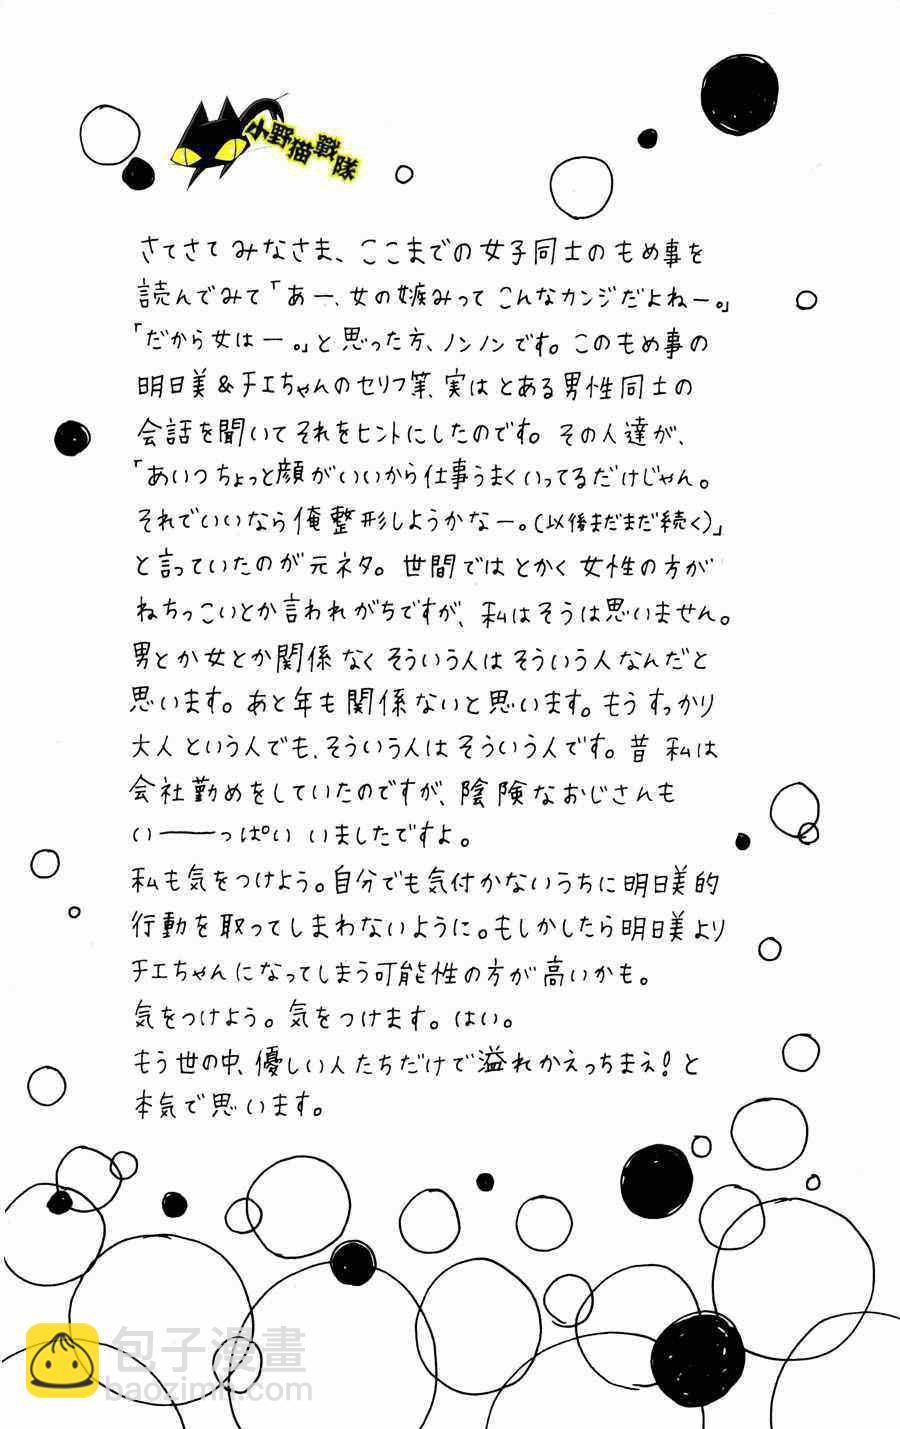 小野猫戰隊
さてさてみなさま、ここまでの女子同士のもめ事を
読んでみて「あー、女の嫉みってこんなカンジだよねー。」
「だから女はー。」と思った方、ノンノンです。このもめ事の
明日美&チエちゃんのセリフ等、実はとある男性同士の
会話を聞いてそれをヒントにしたのです。その人達が、
「あいつちょっと顔がいいから仕事うまくいってるだけじゃん。
それでいいなら俺整形しようかなー。(以後まだまだ続く)」
と言っていたのが元ネタ。世間ではとかく女性の方が
ねちっこいとか言われがちですが、私はそうは思いません。
男とか女とか関係なくそういう人はそういう人なんだと
思います。あと年も関係ないと思います。もうすっかり
大人という人でも、そういう人はそういう人です。昔私は
会社勤めをしていたのですが、陰険なおじさんも
い──っぱいいましたですよ。
私も気をつけよう。自分でも気付かないうちに明日美的
行動を取ってしまわないように。もしかしたら明日美より
チエちゃんになってしまう可能性の方が高いかも。
気をつけよう。気をつけます。はい。
もう世の中、優しい人たちだけで溢れかえっちまえ!と
本気で思います。
包子漫畫
baozimh.com